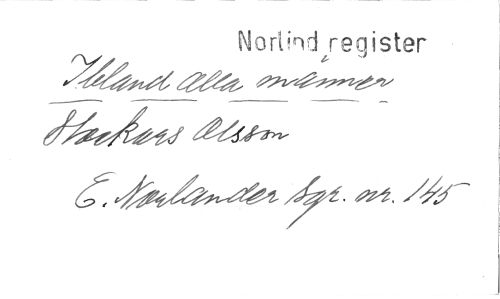 Norlind register
Ibland alla männer
Stockars Olsson
E. Norlander Sgr. nr. 145